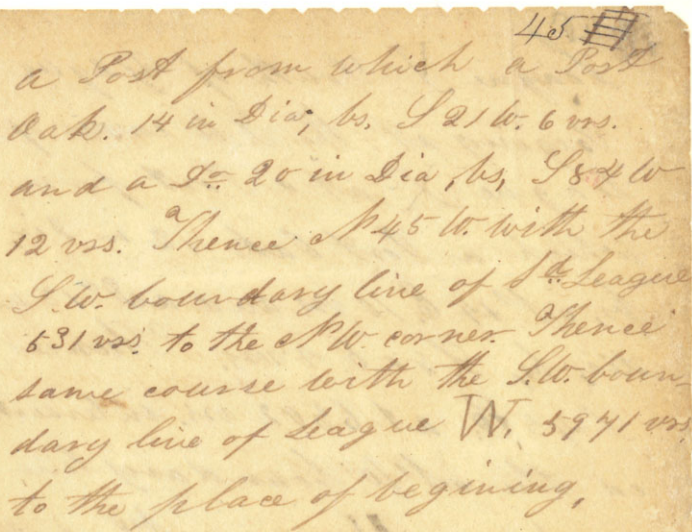 45
a Post from which a Post
Oak. 14 in Dia, bs. S 21 W. 6 vrs.
and a Do. 20 in Dia, bs, S 84 W
12 vrs. Thence N 45 W. with the
S.W. boundary line of Sd. League
531 vrs. to the N W. corner. Thence
same course with the S.W. boun-
dary line of League W. 5971 vrs.
to the place of begining,